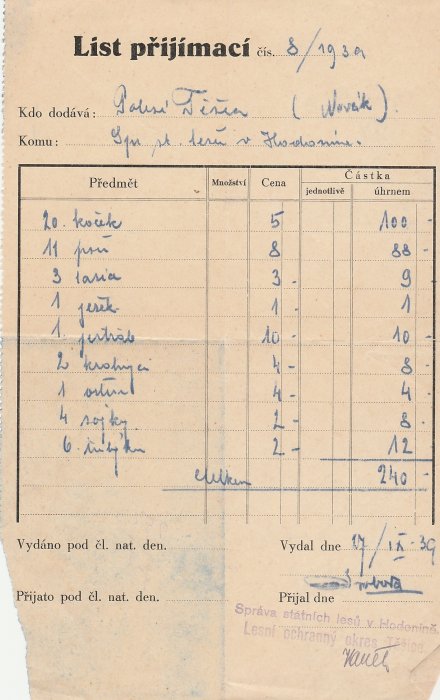 List přijímací čís. 8/1939
Kdo dodává: Polesí Těšice (Novák).
Komu: Spr. st. lesů v Hodoníně.
Předmět Množství Cena Částka
jednotlivě úhrnem
20 koček 5 100 -
11 psů 8 88 -
3 lasice 3 - 9 -
1 ježek 1 - 1 -
1 jestřáb 10 - 10 -
2 krahujci 4 - 8 -
1 4 - 4 -
4 sojky 2 - 8 -
6 2 - 12 -
Celkem 240 -
Vydáno pod čl. nat. den. Vydal dne 17/IX-39
Přijato pod čl. nat. den. Přijal dne
Správa státních lesů v Hodoníně
Lesní ochranný okres Těšice